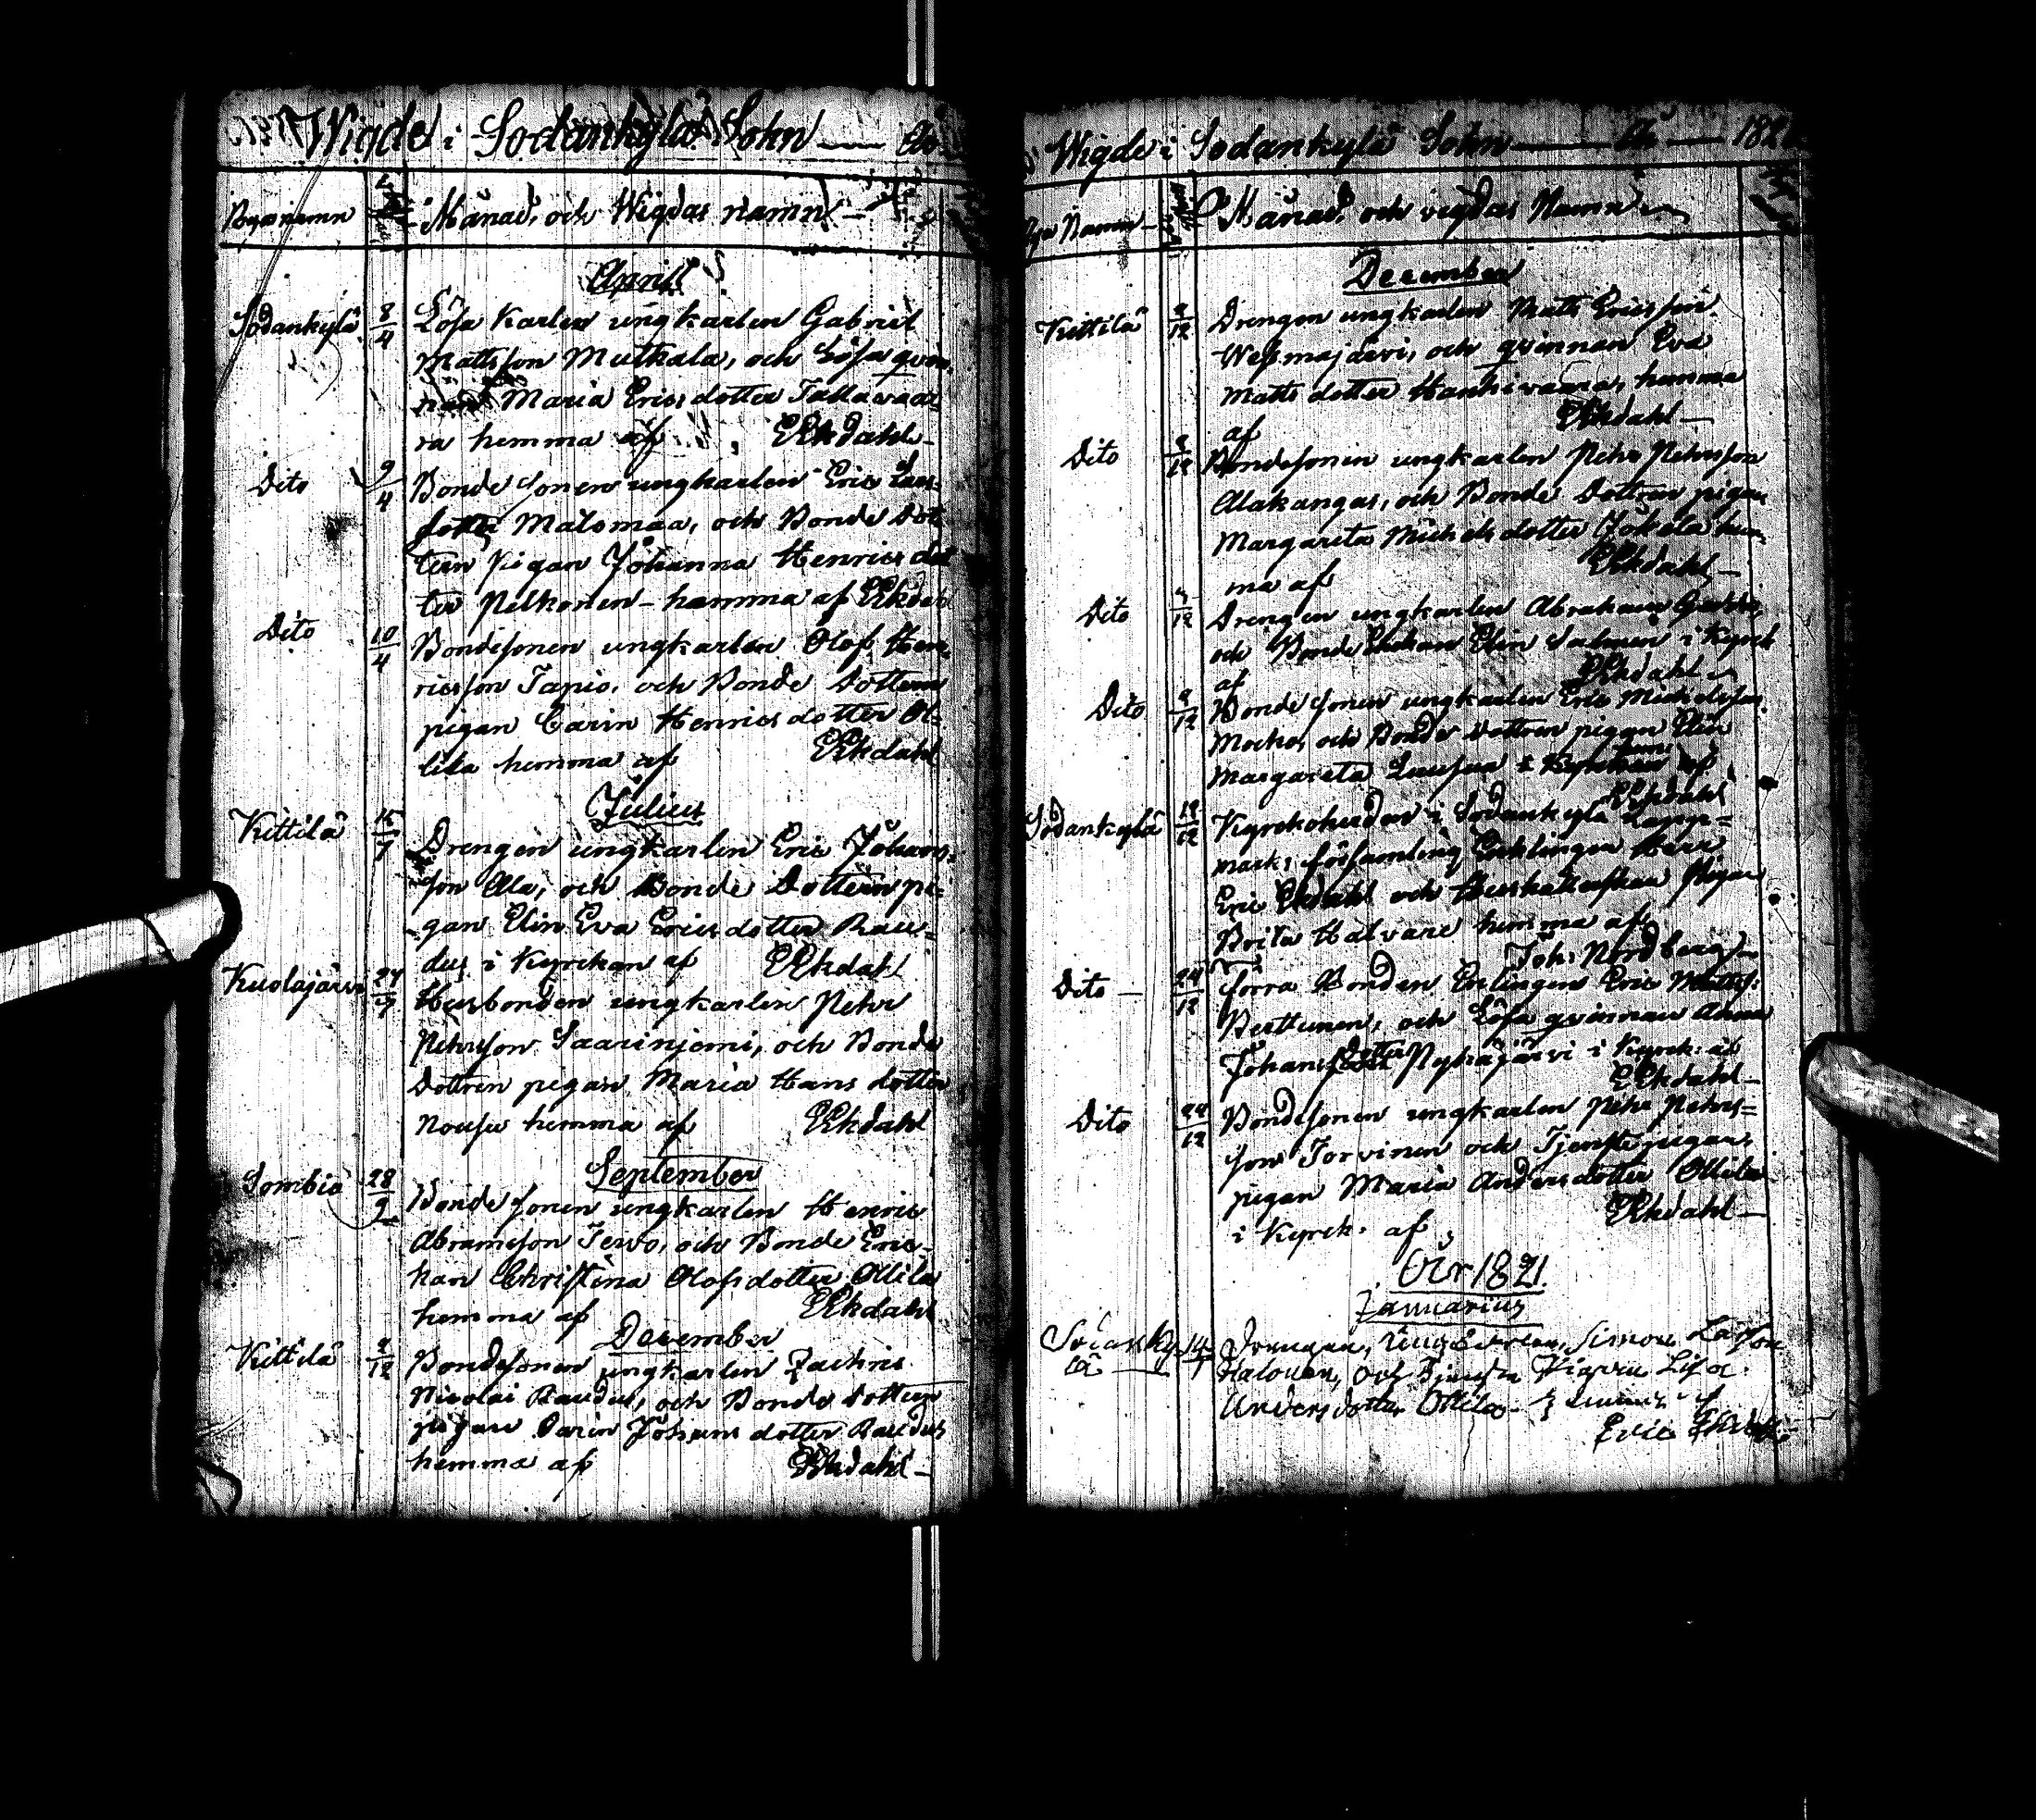 Wigde i Sodankylä Sokn — År
Byanamn
Månad, och Wigdas namn —
April
Sodankylä 8/4 Lösa Karlen ungkarlen Gabriel
Mattsson Mutkala, och Lösa qvin-
nan Maria Ericsdotter Tallawaa-
ra hemma af EEkdahl —
Dito 9/4 Bonde sonen ungkarlen Eric Lars-
Matomaa, och Bonde Dot-
tern Pigan Johanna Henrics dot
ter Pelkonen — hemma af EEkdahl
Dito 10/4 Bondesonen ungkarlen Olof Hen-
ricsson Tapio, och Bonde Dottern
pigan Carin Henricsdotter Ol-
lila hemma af EEkdahl
Julius
Kittilä 15/7 Drengen ungkarlen Eric Johans-
son Ala, och Bonde Dottern pi-
gan Elin Eva Ericsdotter Rau-
dus i Kyrckan af EEkdahl
Kuolajärvi Husbonden ungkarlen Pehr
Pehrsson Saarinjemi, och Bonde
Dottren pigan Maria Hans dotter
Nousu hemma af EEkdahl
September
Sombio 28/9 Bonde sonen ungkarlen Henric
Abramsson Tervo, och Bonde Enc-
kan Christina Olofsdotter Ollila
hemma af EEkdahl
December
Kittilä 9/12 Bondesonen ungkarlen Zachris
Nicolai Raudus, och Bonde dottern
pigan Carin Johans dotter Raudus
hemma af EEkdahl —
Wigde i Sodankylä Sokn — År — 182
Bya Namn — Månad, och vigdas Namn —
December
Kittilä 9/12 Drengen ungkarlen Matts Ericsson
Wesmajärvi, och qvinnan Eva
Matts dotter Hankivaara, hemma
af EEkdahl —
Dito 9/12 Bondesonen ungkarlen Pehr Pehrsson
Alakangas, och Bonde Dottren pigan
Margareta Michelsdotter Jokela hem-
ma af EEkdahl —
Dito 9/12 Drengen ungkarlen Abraham
och Bonde Enckan Elin Salmen i Kyrck
af EEkdahl —
Dito 9/12 Bonde sonen ungkarlen Eric Michelsson
och Bonde Dottren pigan Elin
Margareta af
EEkdahl
Sodankylä Kyrckoherden i Sodankylä Lapp-
mark, församling Encklingen Herr
Eric Ekdahl och Pigan
Brita Halvari hemma af
Joh: Nordberg —
Dito — 24/12 förra Bonden Enlingen Eric Matts:
Perttunen, och Lösa qvinnan Anna
Johans dotter i Kyrck: af
EEkdahl —
Dito 24/12 Bondesonen ungkarlen Pehr Pehrs-
son Torvinen och Tjenste pigan
pigan Maria Andersdotter Ollila
i Kyrck: af EEkdahl —
År 1821
Januarius
Sodanky- 14/1 Drengen, Ungkarlen, Simon Larsson
lä Halonen, och Tjensте Pigan Lisa
Anders dotter Ollila — hemma af
Eric Ekdahl